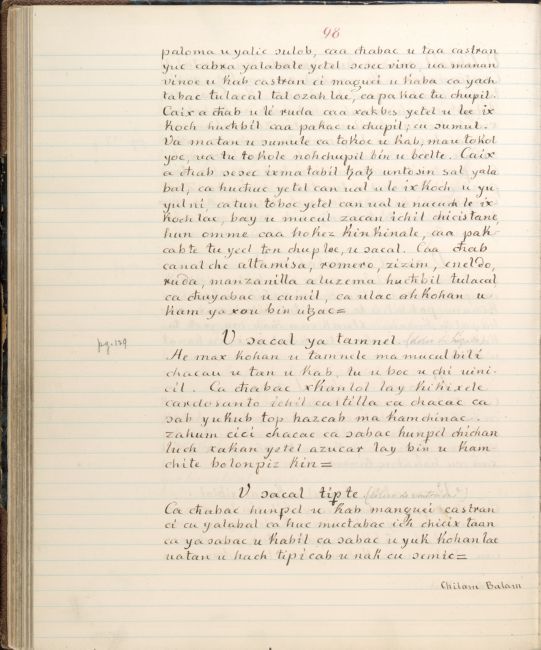 98
paloma u yalic sulob, caa chabac u taa castran
yuc cabra yalabale yetel sesec vino, ua manan
vinoe u kab castran ci maguei u kaba ca yach
tabac tulacal tal ozah lae, ca pakac tu chupil.
Caix a chab u lé ruda caa xakbes yetel u lee ix
koch huchbil caa pakac u chupil; cu sumul.
Va matan u sumule ca tokoc u kab, mau tokol
yoc, ua tu tokole nohchupil bin u beelte. Caix
a chab sesec ixmatabil untosin sal yala
bal, ca huchuc yetel can ual u le ix koch u yu
yulni, catun toboc yetel can ual u le ix
koch lae, bay u mucul zacan ichil chicistane,
hun omme caa hokez kinkinale, caa pak
cabte tu yeel ten chuplee, u sacal. Caa chab
canalche altamisa, romero, zizim, eneldo,
ruda, manzanilla aluzema huchbil tulacal
ca chuyabac u cumil, ca ulac ahkohan u
kam ya xou bin utzac=
pg. 139
U sacal ya tamnel
He max kohan u tamnele ma mucul bili
chacau u tan u kab, tu u boc u chi uini-
cil. Ca chabac xkanlol lay kikixele
cardosanto ichil castilla ca chacac ca
sab yukub top hazcab ma kamchinac.
zahum cici chacac ca sabac hunpel chichan
luch xakan yetel azucar lay bin u kam-
chite bolonpiz kin=
U sacal tipte
Ca chabac hunpel u kab manguei castran
ci cu yalabal ca huc muctabac ich chicix taan
ca ya sabac u kabil ca sabac u yuk kohan lae
uatan u hach tipicab u nak cu semic=
Chilam Balam